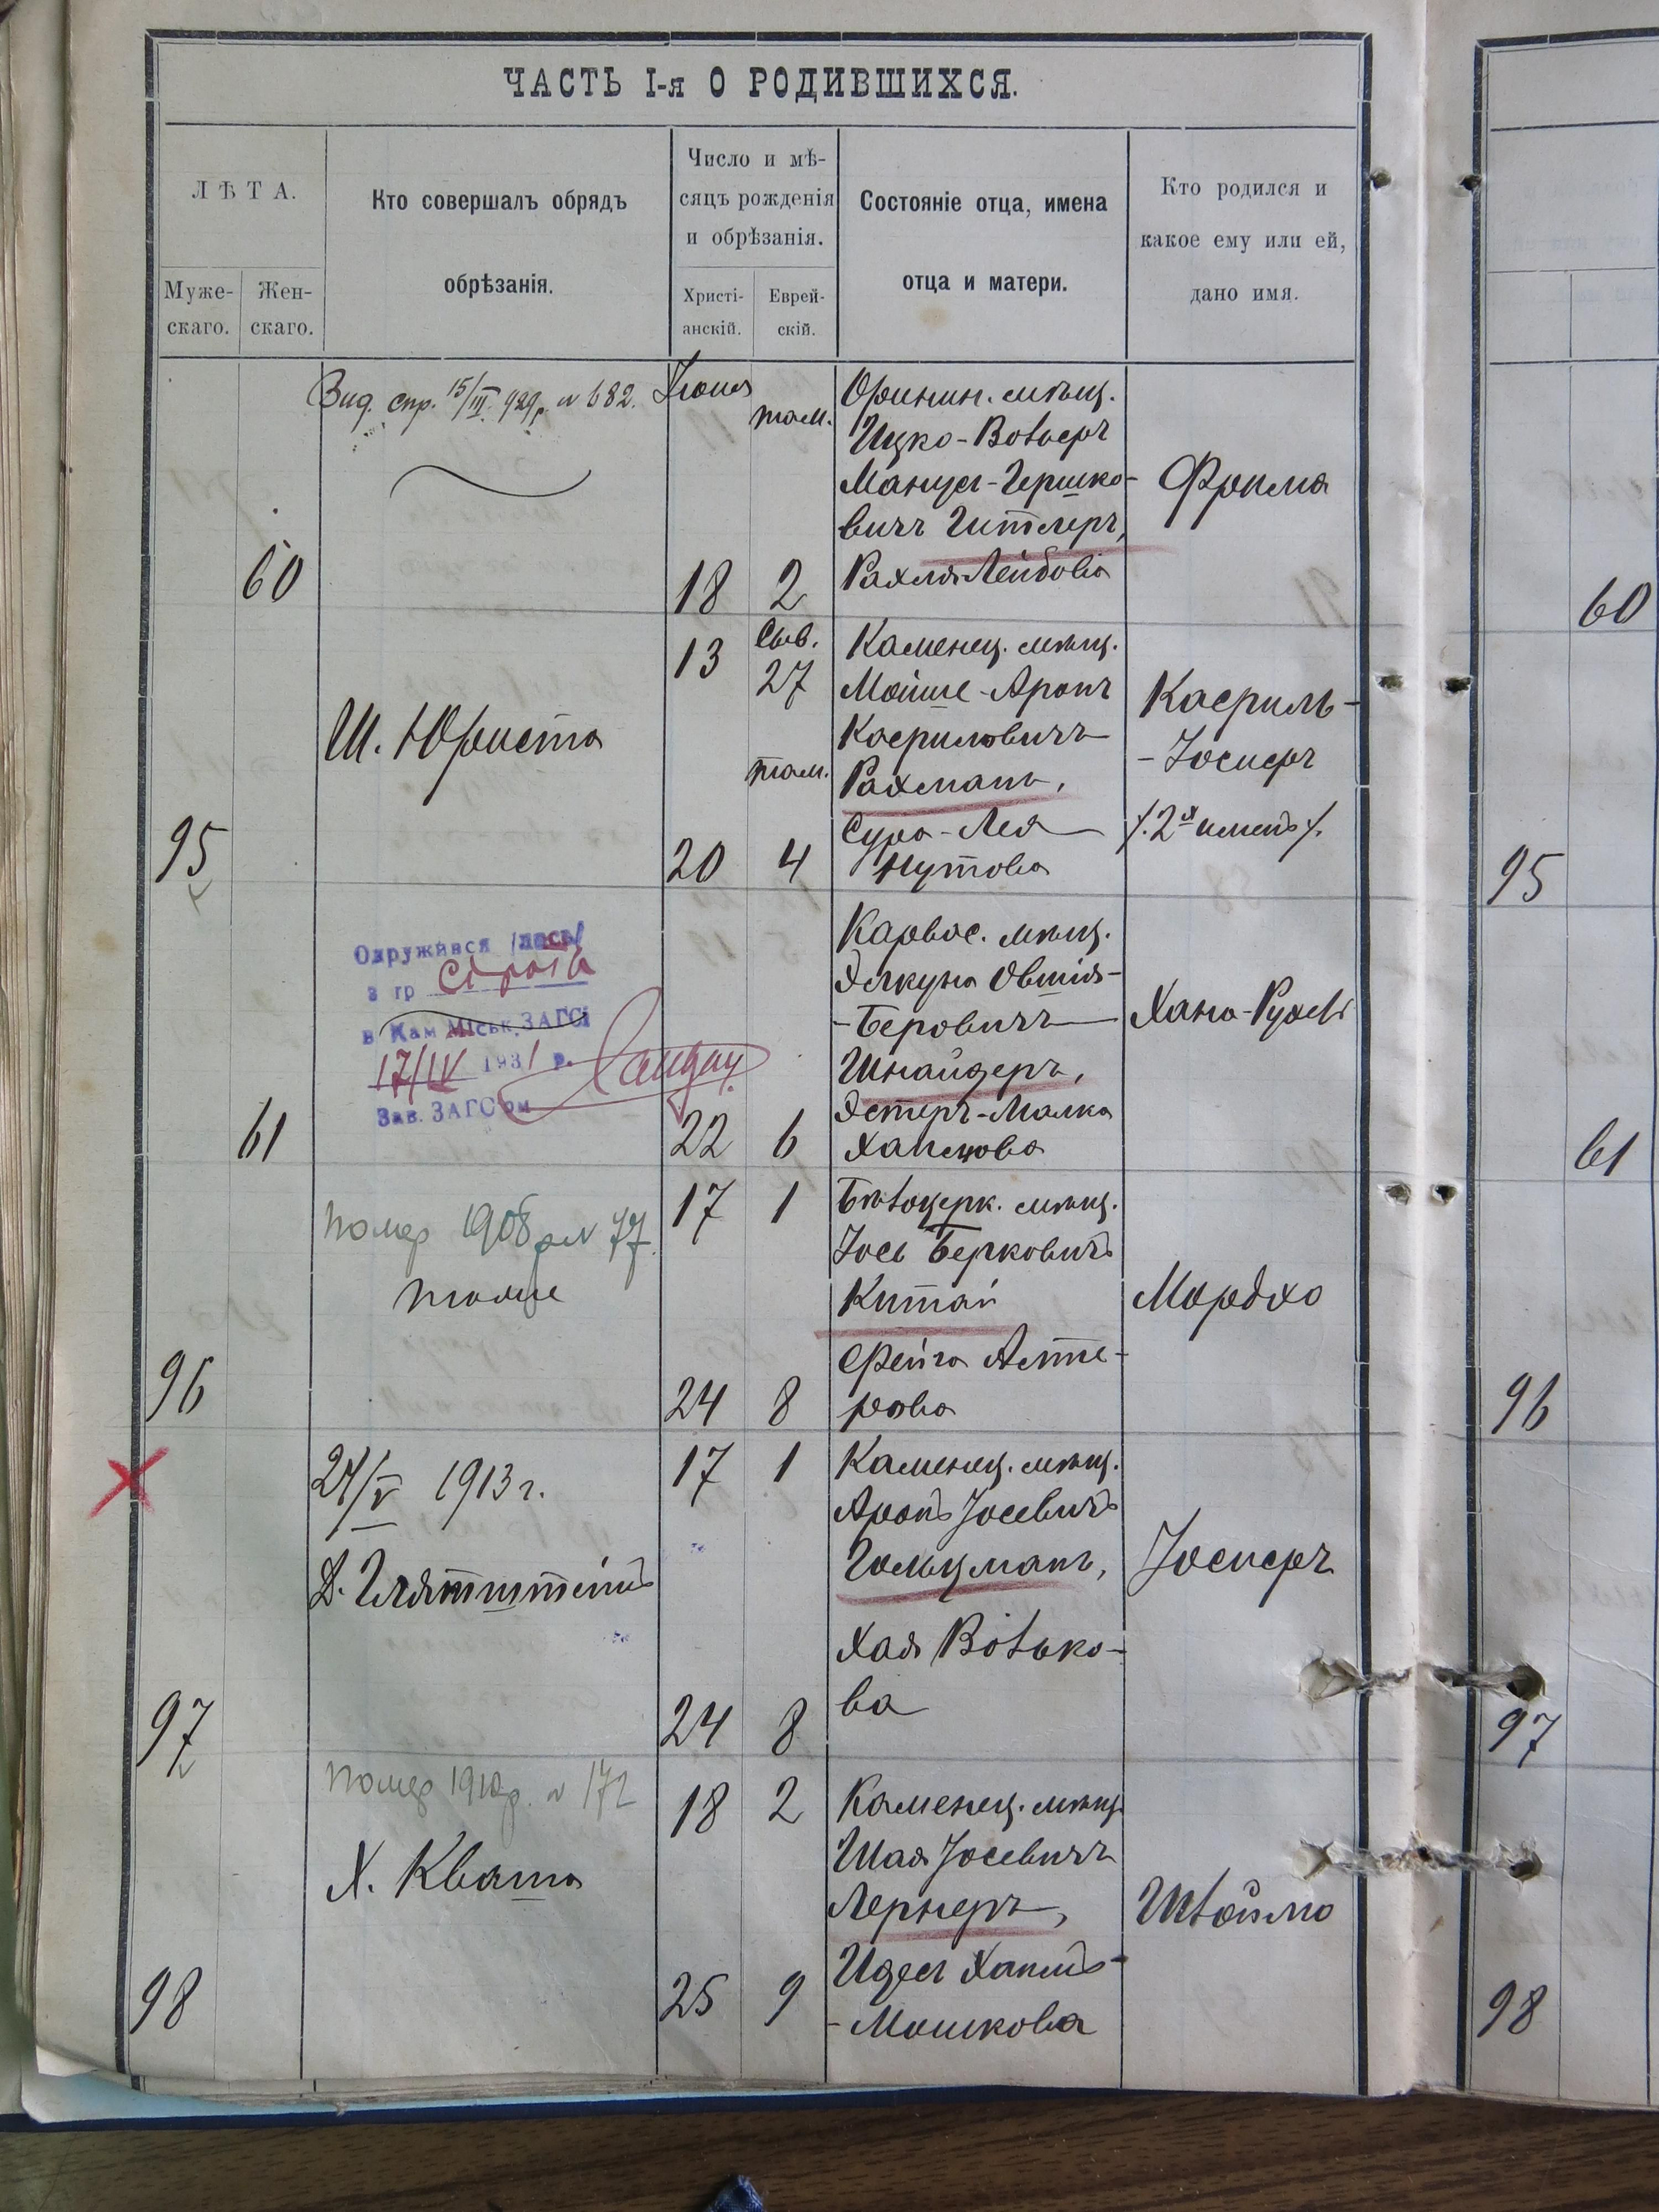 ЧАСТЬ I-я О РОДИВШИХСЯ.
ЛѢТА.
Муже-
скаго.
Жен-
скаго.
Кто совершалъ обрядъ
обрѣзанія.
Число и мѣ-
сяцъ рожденія
и обрѣзанія.
Христі-
анскій.
Еврей-
скій.
Состояніе отца, имена
отца и матери.
Кто родился и
какое ему или ей,
дано имя.
60
Вид. спр. 15/III 929 р. № 682.
Іюня
там.
18
2
Оринин. мѣщ.
Ицко-Вольфъ
Манус-Гершко-
вичъ Гитлеръ,
Рахля Лейбова
Фрима
60
95
Ш. Юриста
13
Сив.
27
там.
20
4
Каменец. мѣщ.
Мойше-Аронъ
Касриловичъ
Рахманъ,
Сура-Лея
Нутова
Касриль-
-Іосифъ
/. 2х именъ /.
95
61
Одружився /лась/
з гр
в Кам Міськ. ЗАГСі
17/IV 1931 р.
Зав. ЗАГС'ом
22
6
Карвос. мѣщ.
Элкуна Овшія-
-Беровичъ
Шнайдеръ,
Эстеръ-Малка
Хаимова
Хана-Рухель
61
96
помер 1908 р. № 77.
тоже
17
1
24
8
Бѣлоцерк. мѣщ.
Іось Берковичъ
Китай
Фейга Алте-
рова
Мордхо
96
97
24/V 1913 г.
Д. Глятштейнъ
17
1
24
8
Каменец. мѣщ.
Аронъ Іосевичъ
Гольцманъ,
ХаяВолько-
ва
Іосифъ
97
98
помер 1910 р. № 172
Х. Кваша
18
2
25
9
Каменец. мѣщ.
Шая Іосевичъ
Лернеръ,
Идес Хаимъ-
-Мошкова
Шлойма
98